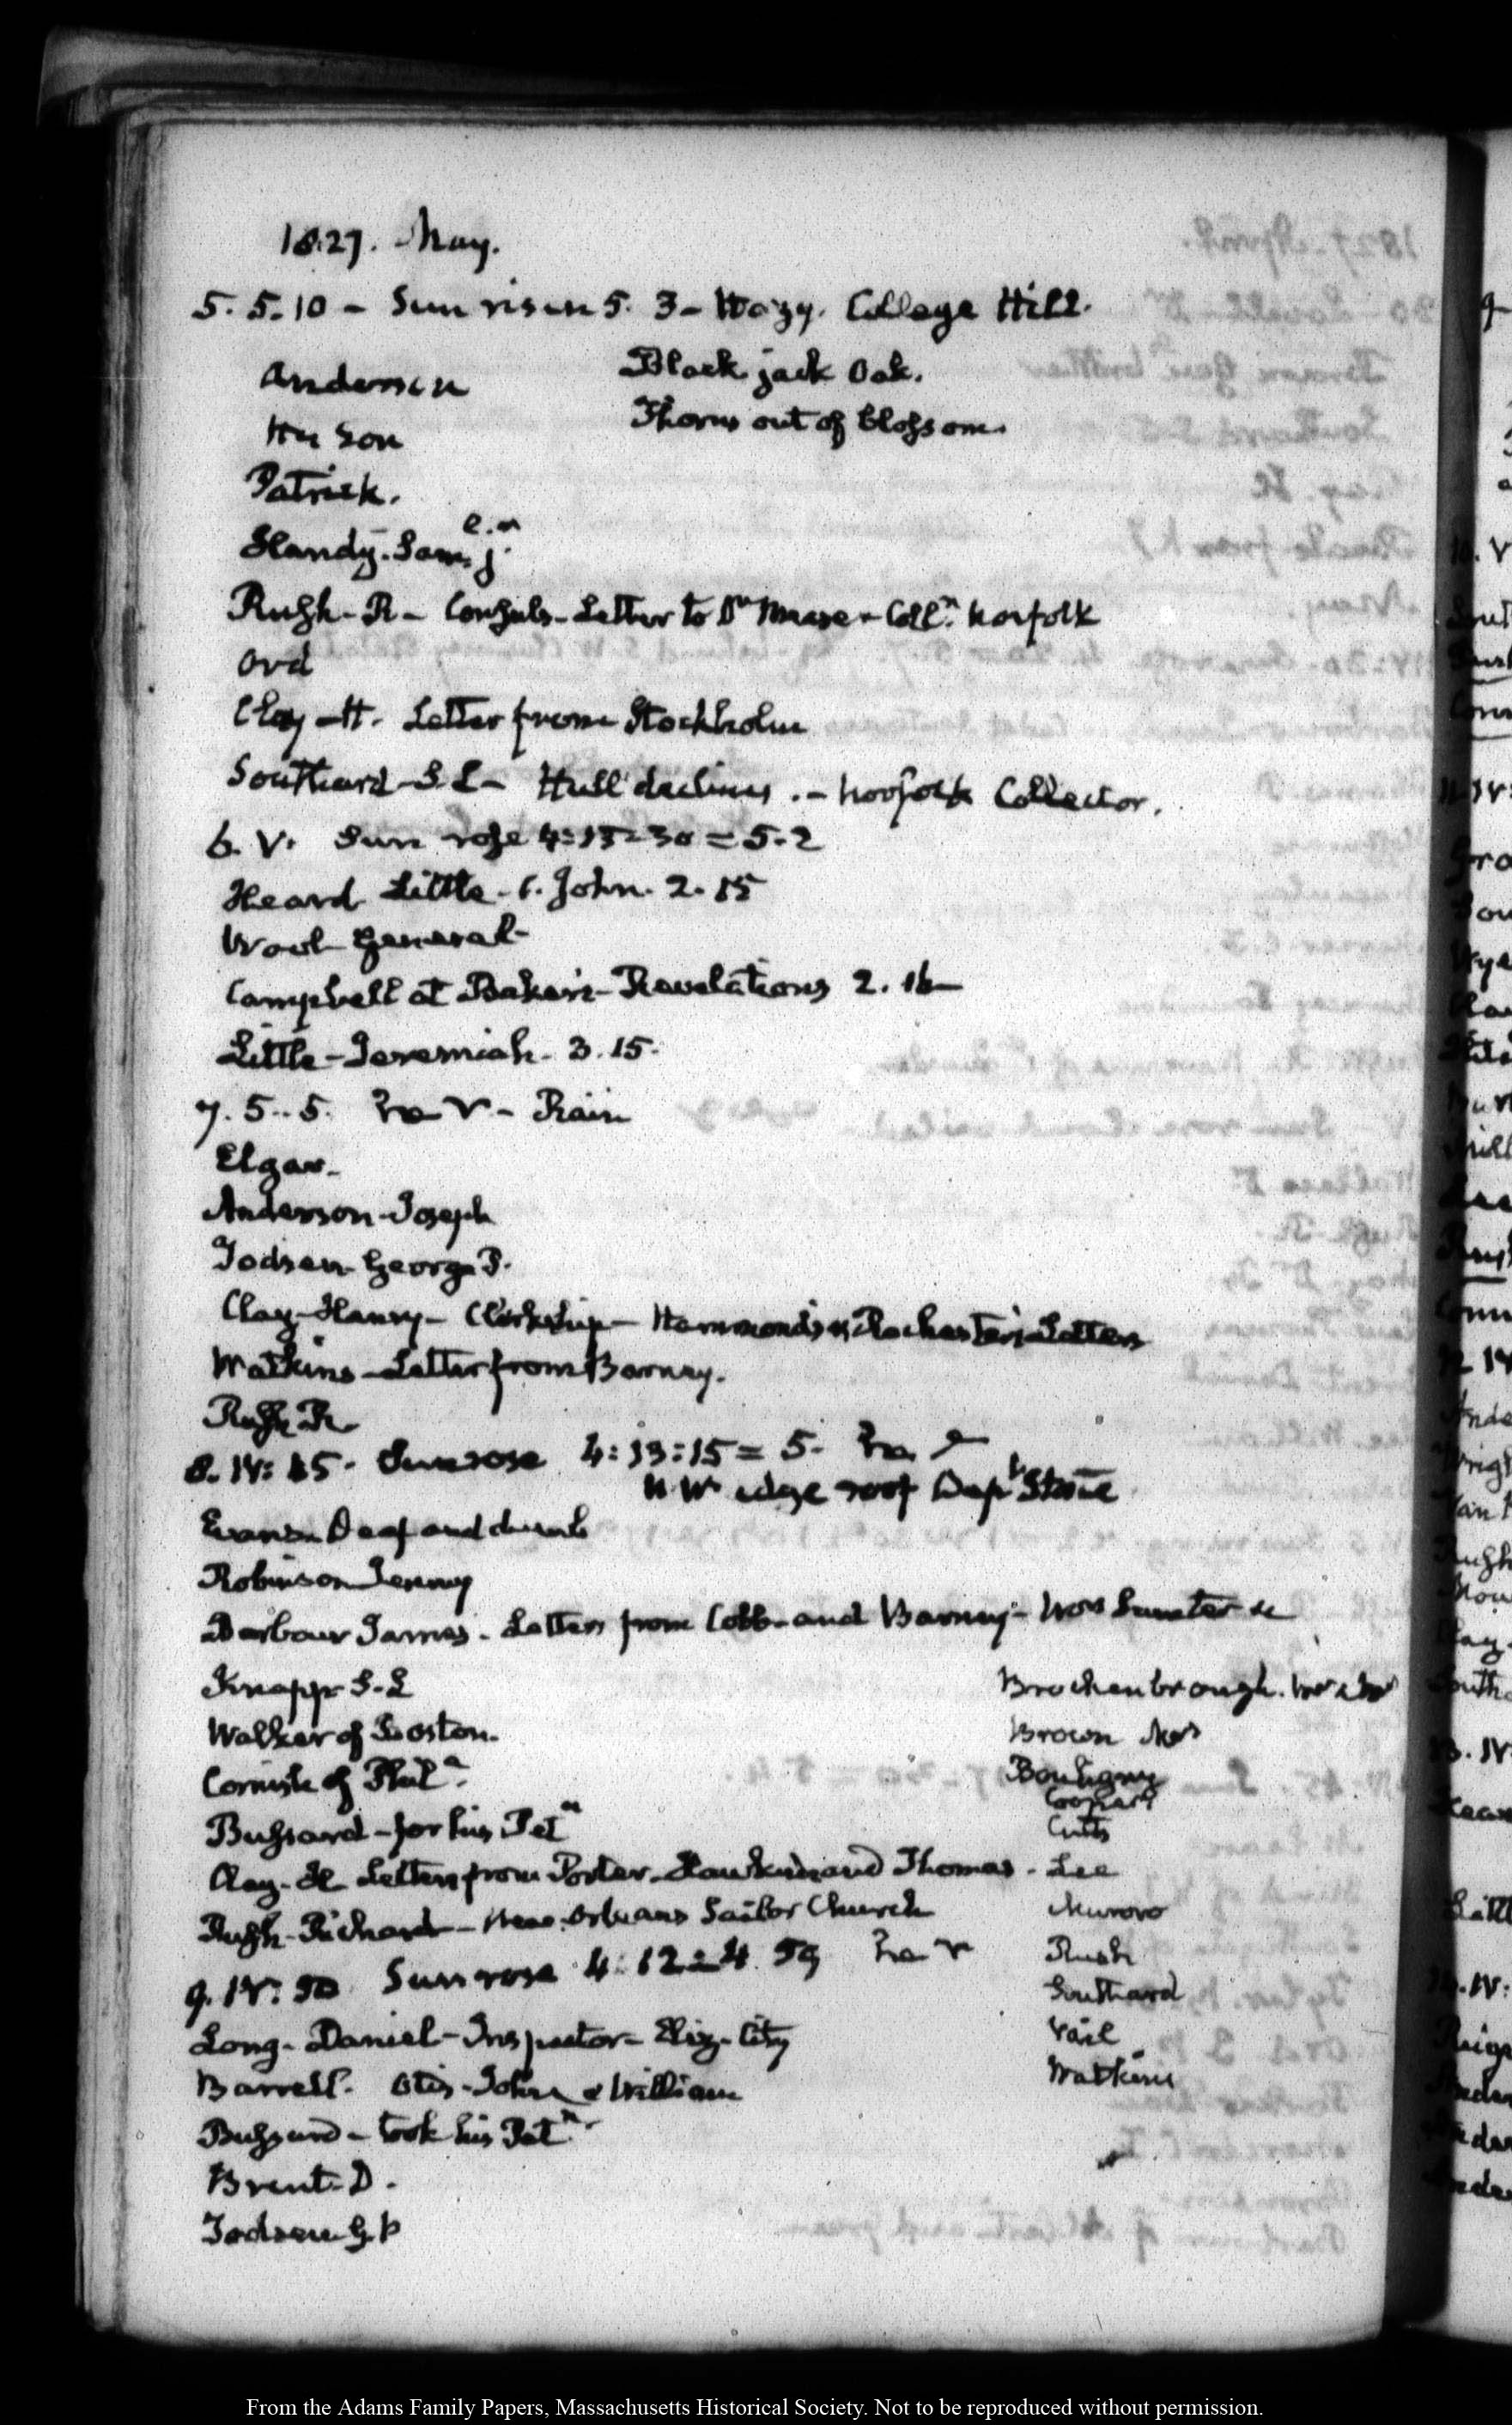 1827. May.
5. 5.10 - Sun risen 5. 3 - Hazy. College Hill.
Anderson
Black jack Oak.
Thorns out of blossom.
His Son
Patrick.
Handy. Sam. j.
Rush - R - Consuls - Letter to Dr Mease - Colln. Norfolk
Ord
Clay - H. Letter from Stockholm
Southard - S. L - Hull declines. - Norfolk Collector.
6. V. Sun rose 4:13:30 = 5-2
Heard Little - 1. John. 2. 15
Wool General
Campbell at Baker's - Revelations 2. 16
Little - Jeremiah. 3. 15.
7. 5..5. V - Rain
Elgar.
Anderson - Joseph
Todsen George P.
Clay - Henry - Clerkship - Hammond's & Rochester's Letters
Watkins - Letter from Barney.
Rush R.
8. IV: 45. Sun rose 4:13:15 = 5.
N.W. edge roof Dept State
Evans. Deaf and dumb
Robinson Jenny
Barbour James. Letters from Cobb - and Barney -
Knapp S. L
Walker of Boston.
Cornish of Phila.
Bussard - for his Petn
Clay - H Letters from Porter - Hawkins and Thomas.
Rush - Richard - New Orleans Sailor Church
Brockenbrough.
Brown Mrs
Bouligny
Cutts
Lee
Munroe
Rush
Southard
Vail
Watkins
9. IV: 50 Sun rose 4:12 = 4. 59
Long - Daniel - Inspector - Eliz. City
Barrell. Otis - John & William
Bussard - took his Petn.
Brent - D.
Todsen G. P
From the Adams Family Papers, Massachusetts Historical Society. Not to be reproduced without permission.